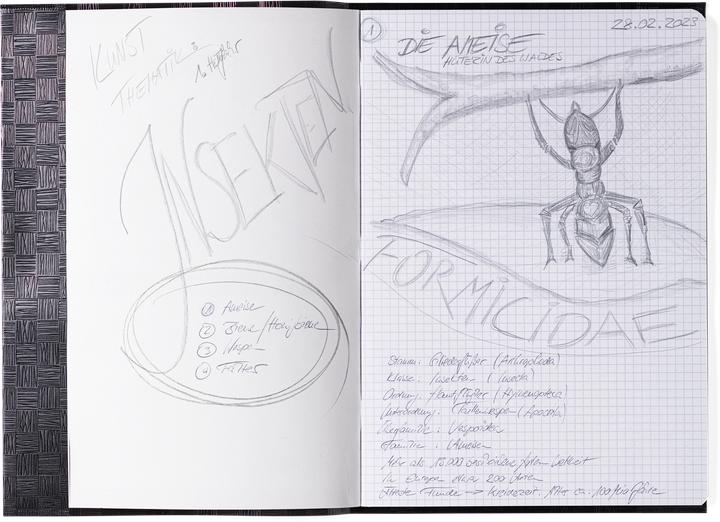 KUNST
THEMATIK:
1. Halbjahr
INSEKTEN
1 Ameise
2 Biene/Honigbiene
3 Wespe
4
1
28.02.2023
DIE AMEISE
HÜTERIN DES WALDES
FORMICIDAE
Stamm: Gliederfüßer (Arthropoda)
Klasse: Insekten (Insecta)
Ordnung: Hautflügler (Hymenoptera)
Unterordnung: Taillenwespen (Apocrita)
Überfamilie: Vespoidea
Familie: Ameisen
Mehr als 13.000 Arten
In Europa etwa 200 Arten
Älteste Funde → Kreidezeit. Alter ca. 100 Mio Jahre